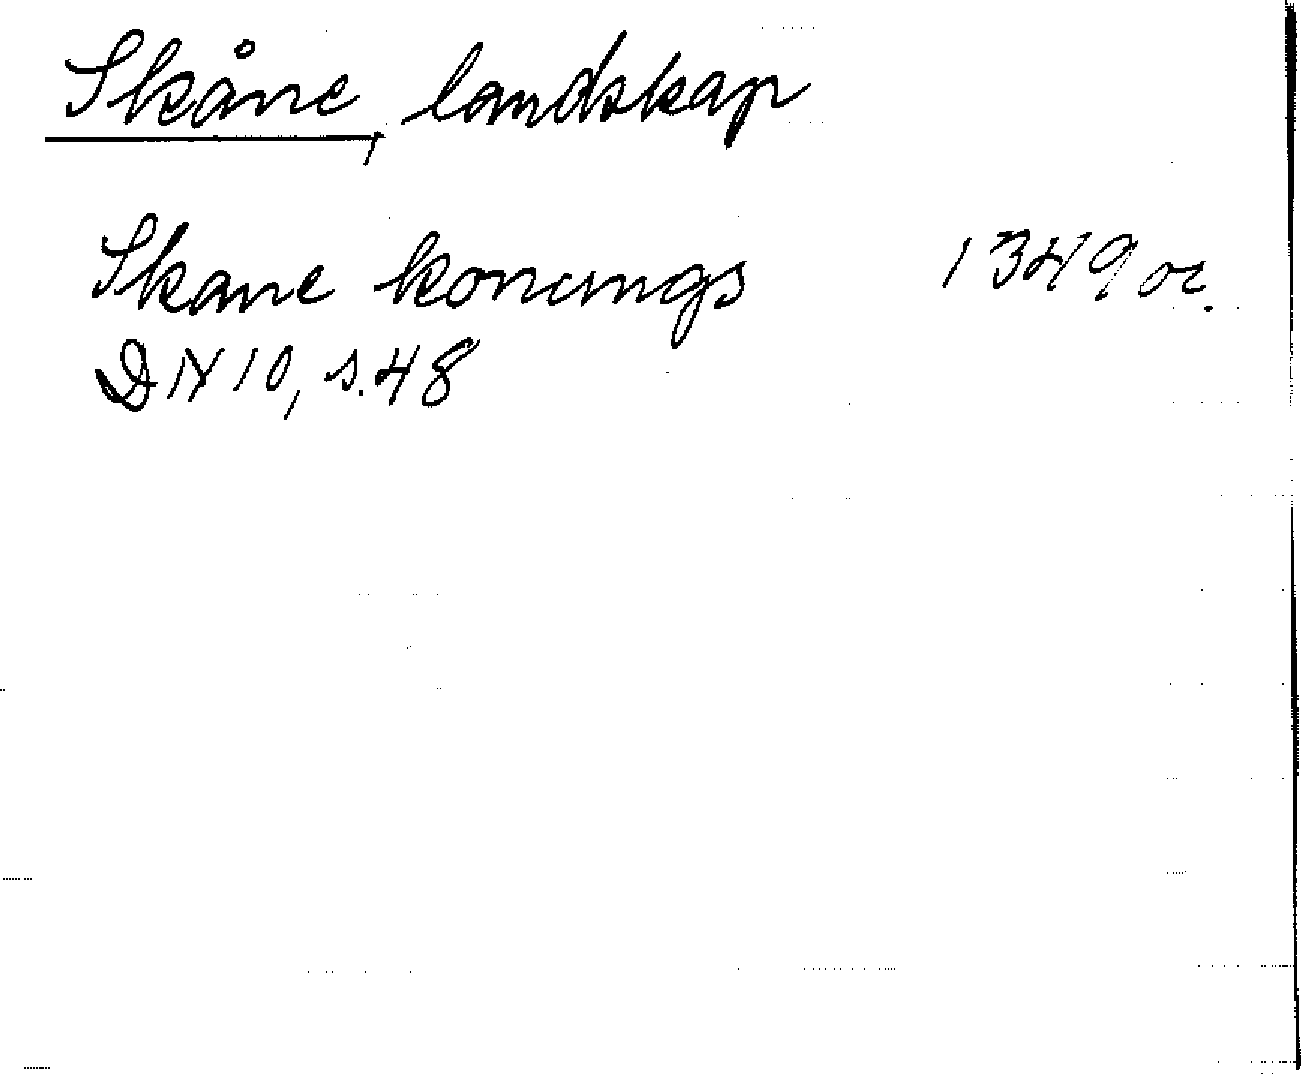 Skåne, landskap
Skane konungs 1349 or.
DN 10, s. 48